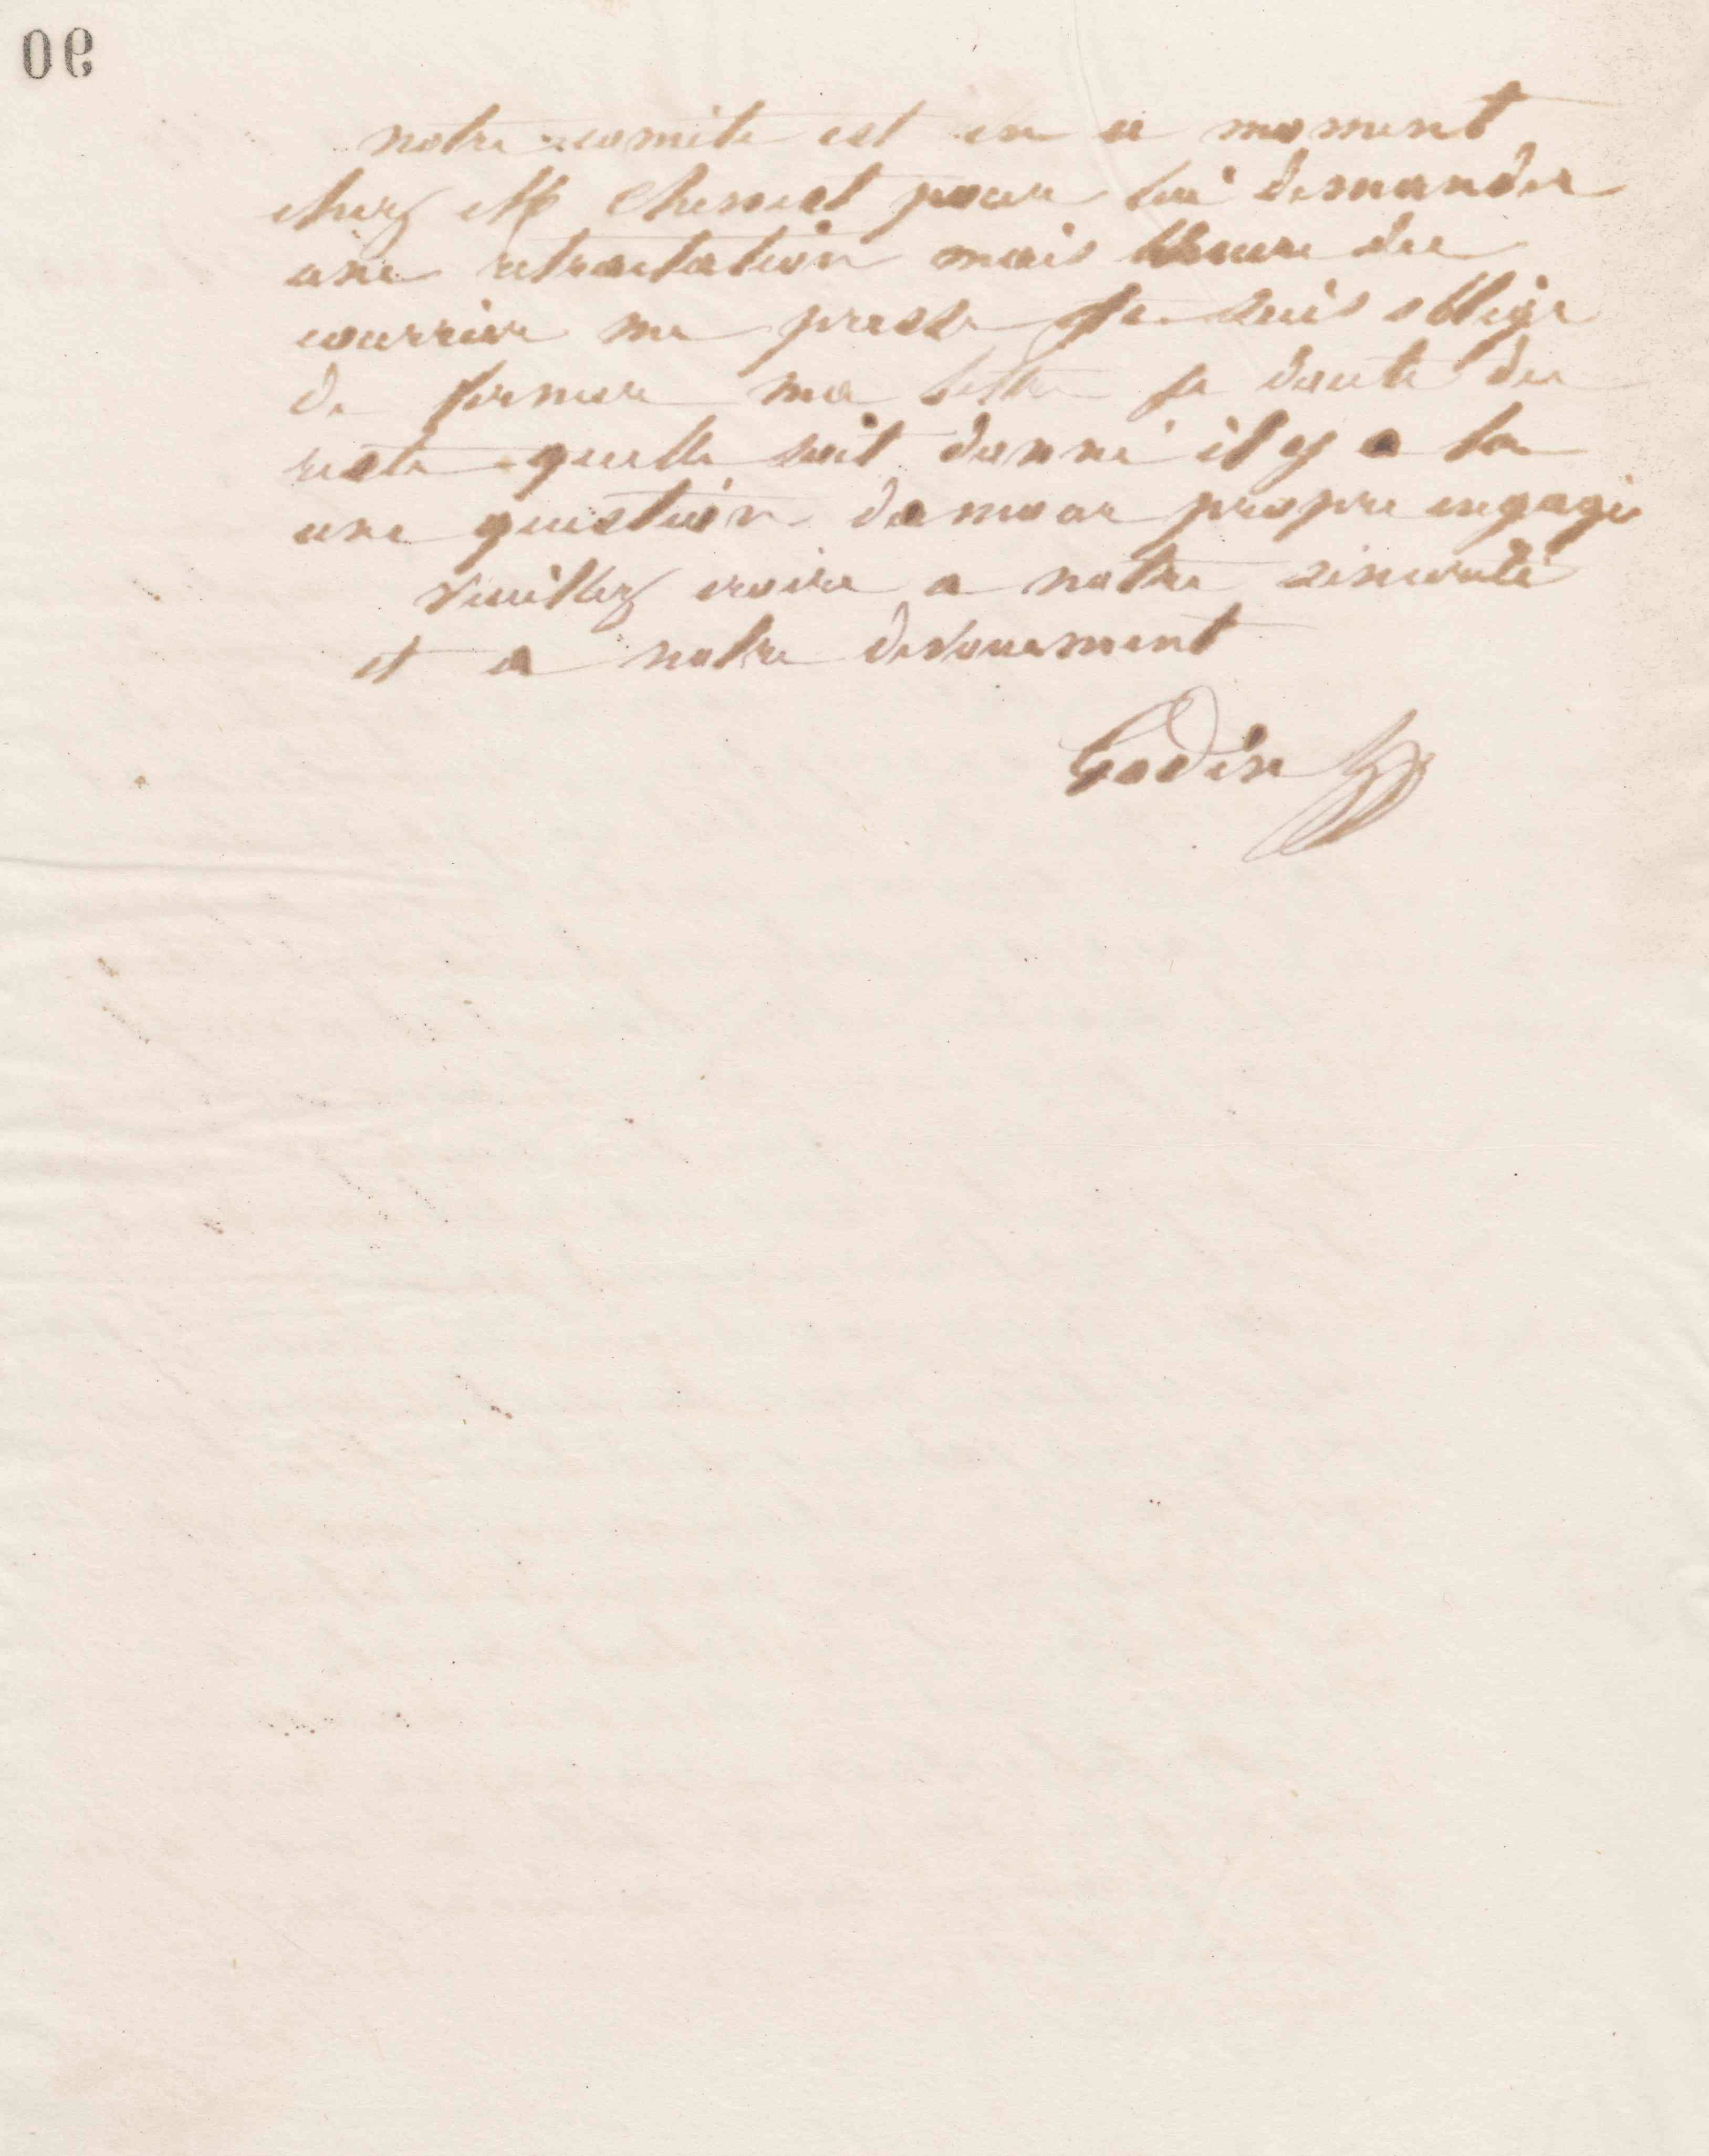 90
notre comite est en ce moment
chez Mr Chenest pour lui demander
une retractation mais lheure du
courrier me presse Je suis oblige
de fermer ma lettre je doute du
reste quelle soit donné il y a la
une question damour propre engagée
Veuillez croire a notre sincerité
et a notre devouement
Godin